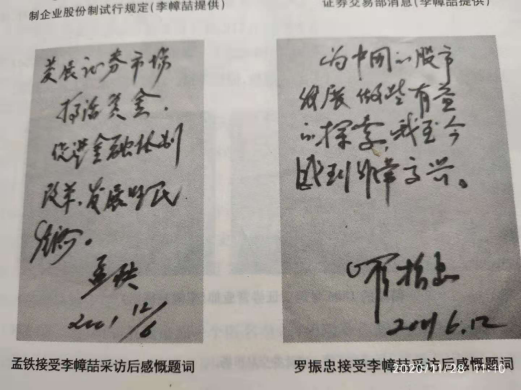 制企业股份制试行规定(李幛喆提供)
证券交易部消息(李幛喆提供)
发展证券市场
搞活资金,
促进金融体制
改革、发展国民
经济。
孟铁
2001 12/6
为中国的股市
发展做些有益
的探索,我至今
感到非常高兴。
罗振忠
2001.6.12
孟铁接受李幛喆采访后感慨题词
罗振忠接受李幛喆采访后感慨题词